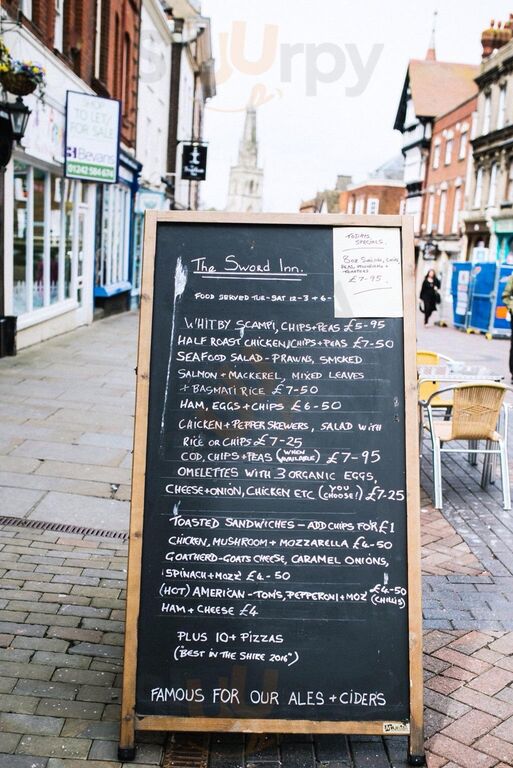 SHOP
TO LET/
FOR SALE
Bevans
01242 584674
TODAYS
SPECIALS.
8oz SIRLOIN, CHIPS,
PEAS, MUSHROOMS +
TOMATOES
£7-95
The Sword Inn.
FOOD SERVED TUE-SAT 12-3 + 6-
WHITBY SCAMPI, CHIPS+PEAS £5-95
HALF ROAST CHICKEN, CHIPS+PEAS £7-50
SEAFOOD SALAD - PRAWNS, SMOKED
SALMON + MACKEREL, MIXED LEAVES
+ BASMATI RICE £7-50
HAM, EGGS + CHIPS £6-50
CHICKEN + PEPPER SKEWERS, SALAD WITH
RICE OR CHIPS £7-25
COD, CHIPS + PEAS (WHEN AVAILABLE) £7-95
OMELETTES WITH 3 ORGANIC EGGS,
CHEESE+ONION, CHICKEN ETC (YOU CHOOSE!) £7-25
TOASTED SANDWICHES - ADD CHIPS FOR £1
CHICKEN, MUSHROOM + MOZZARELLA £4-50
GOATHERD-GOATS CHEESE, CARAMEL ONIONS,
SPINACH+MOZZ £4-50
(HOT) AMERICAN - TOMS, PEPPERONI+MOZ £4-50 (CHILLIS)
HAM + CHEESE £4
PLUS 10+ PIZZAS
("BEST IN THE SHIRE 2016")
FAMOUS FOR OUR ALES + CIDERS